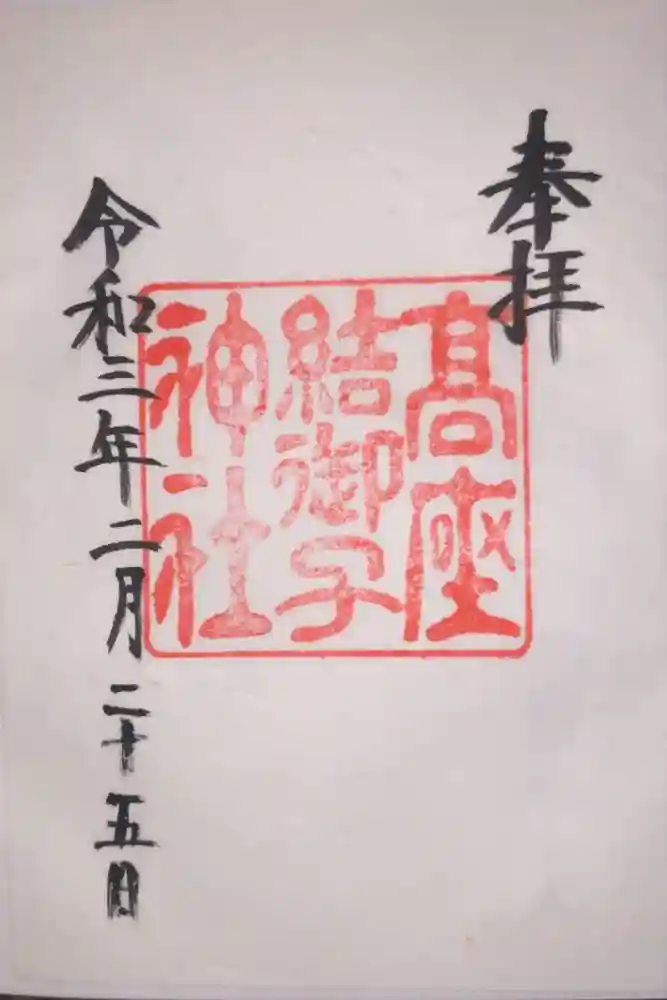 奉拝
髙座
結御子
神社
令和三年二月二十五日